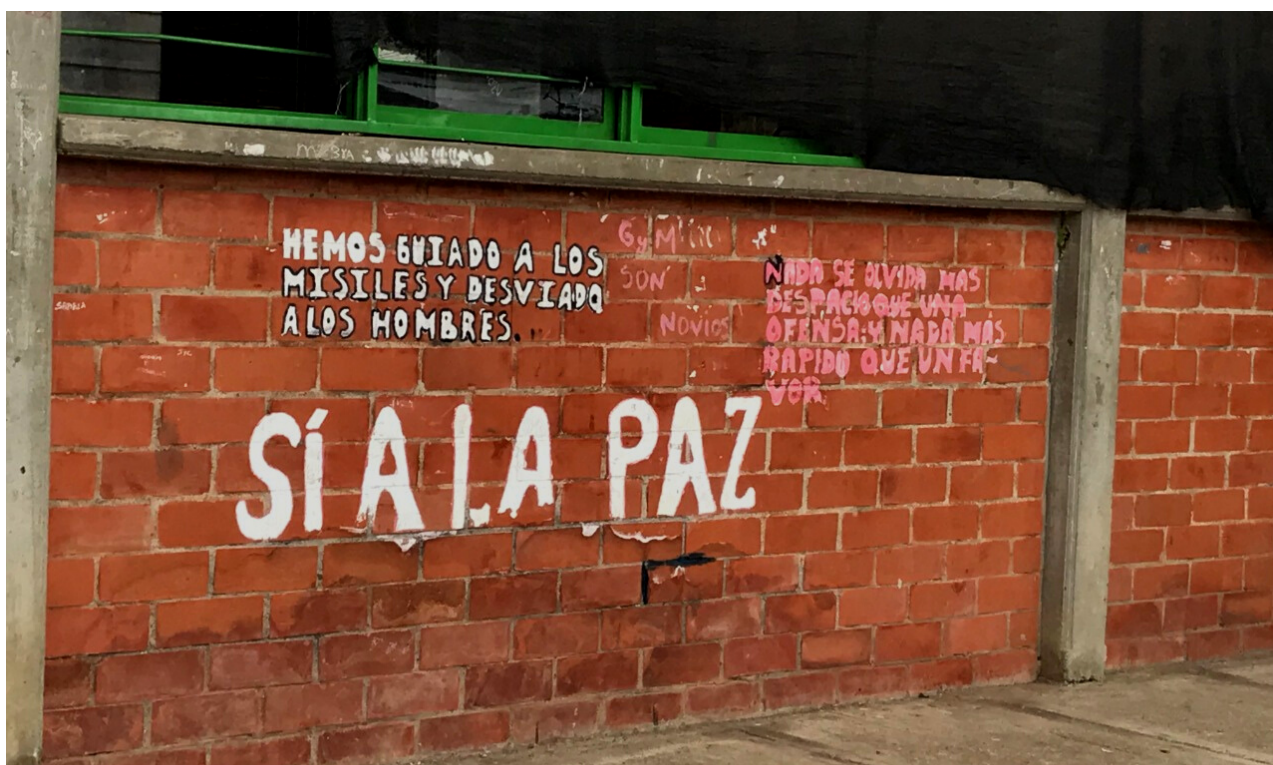 HEMOS GUIADO A LOS
MISILES Y DESVIADO
A LOS HOMBRES.
G y M
SON
NOVIOS
NADA SE OLVIDA MAS
DESPACIO QUE UNA
OFENSA; Y NADA MÁS
RAPIDO QUE UN FA-
VOR
SÍ A LA PAZ